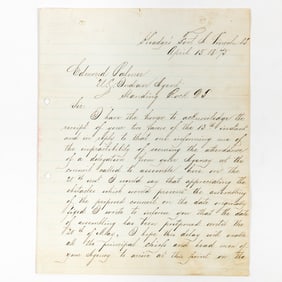 Headqrs Fort A. Lincoln D.T.
April 15 1875
Edmond Palmer
U.S. Indian Agent
Standing Rock D.T.
Sir.
I have the honor to acknowledge the
receipt of your two favors of the 13th instant
and in reply to that one informing me of
the impracticability of securing the attendance
of a delegation from your Agency at the
council called to assemble here on the
I would say that appreciating the
obstacles which would prevent the assembling
of the proposed council on the date originally
fixed I write to inform you that the date
of assembling has been postponed until the
of May. I hope this delay will enable
all the principal chiefs and head men of
your Agency to arrive at this point on the